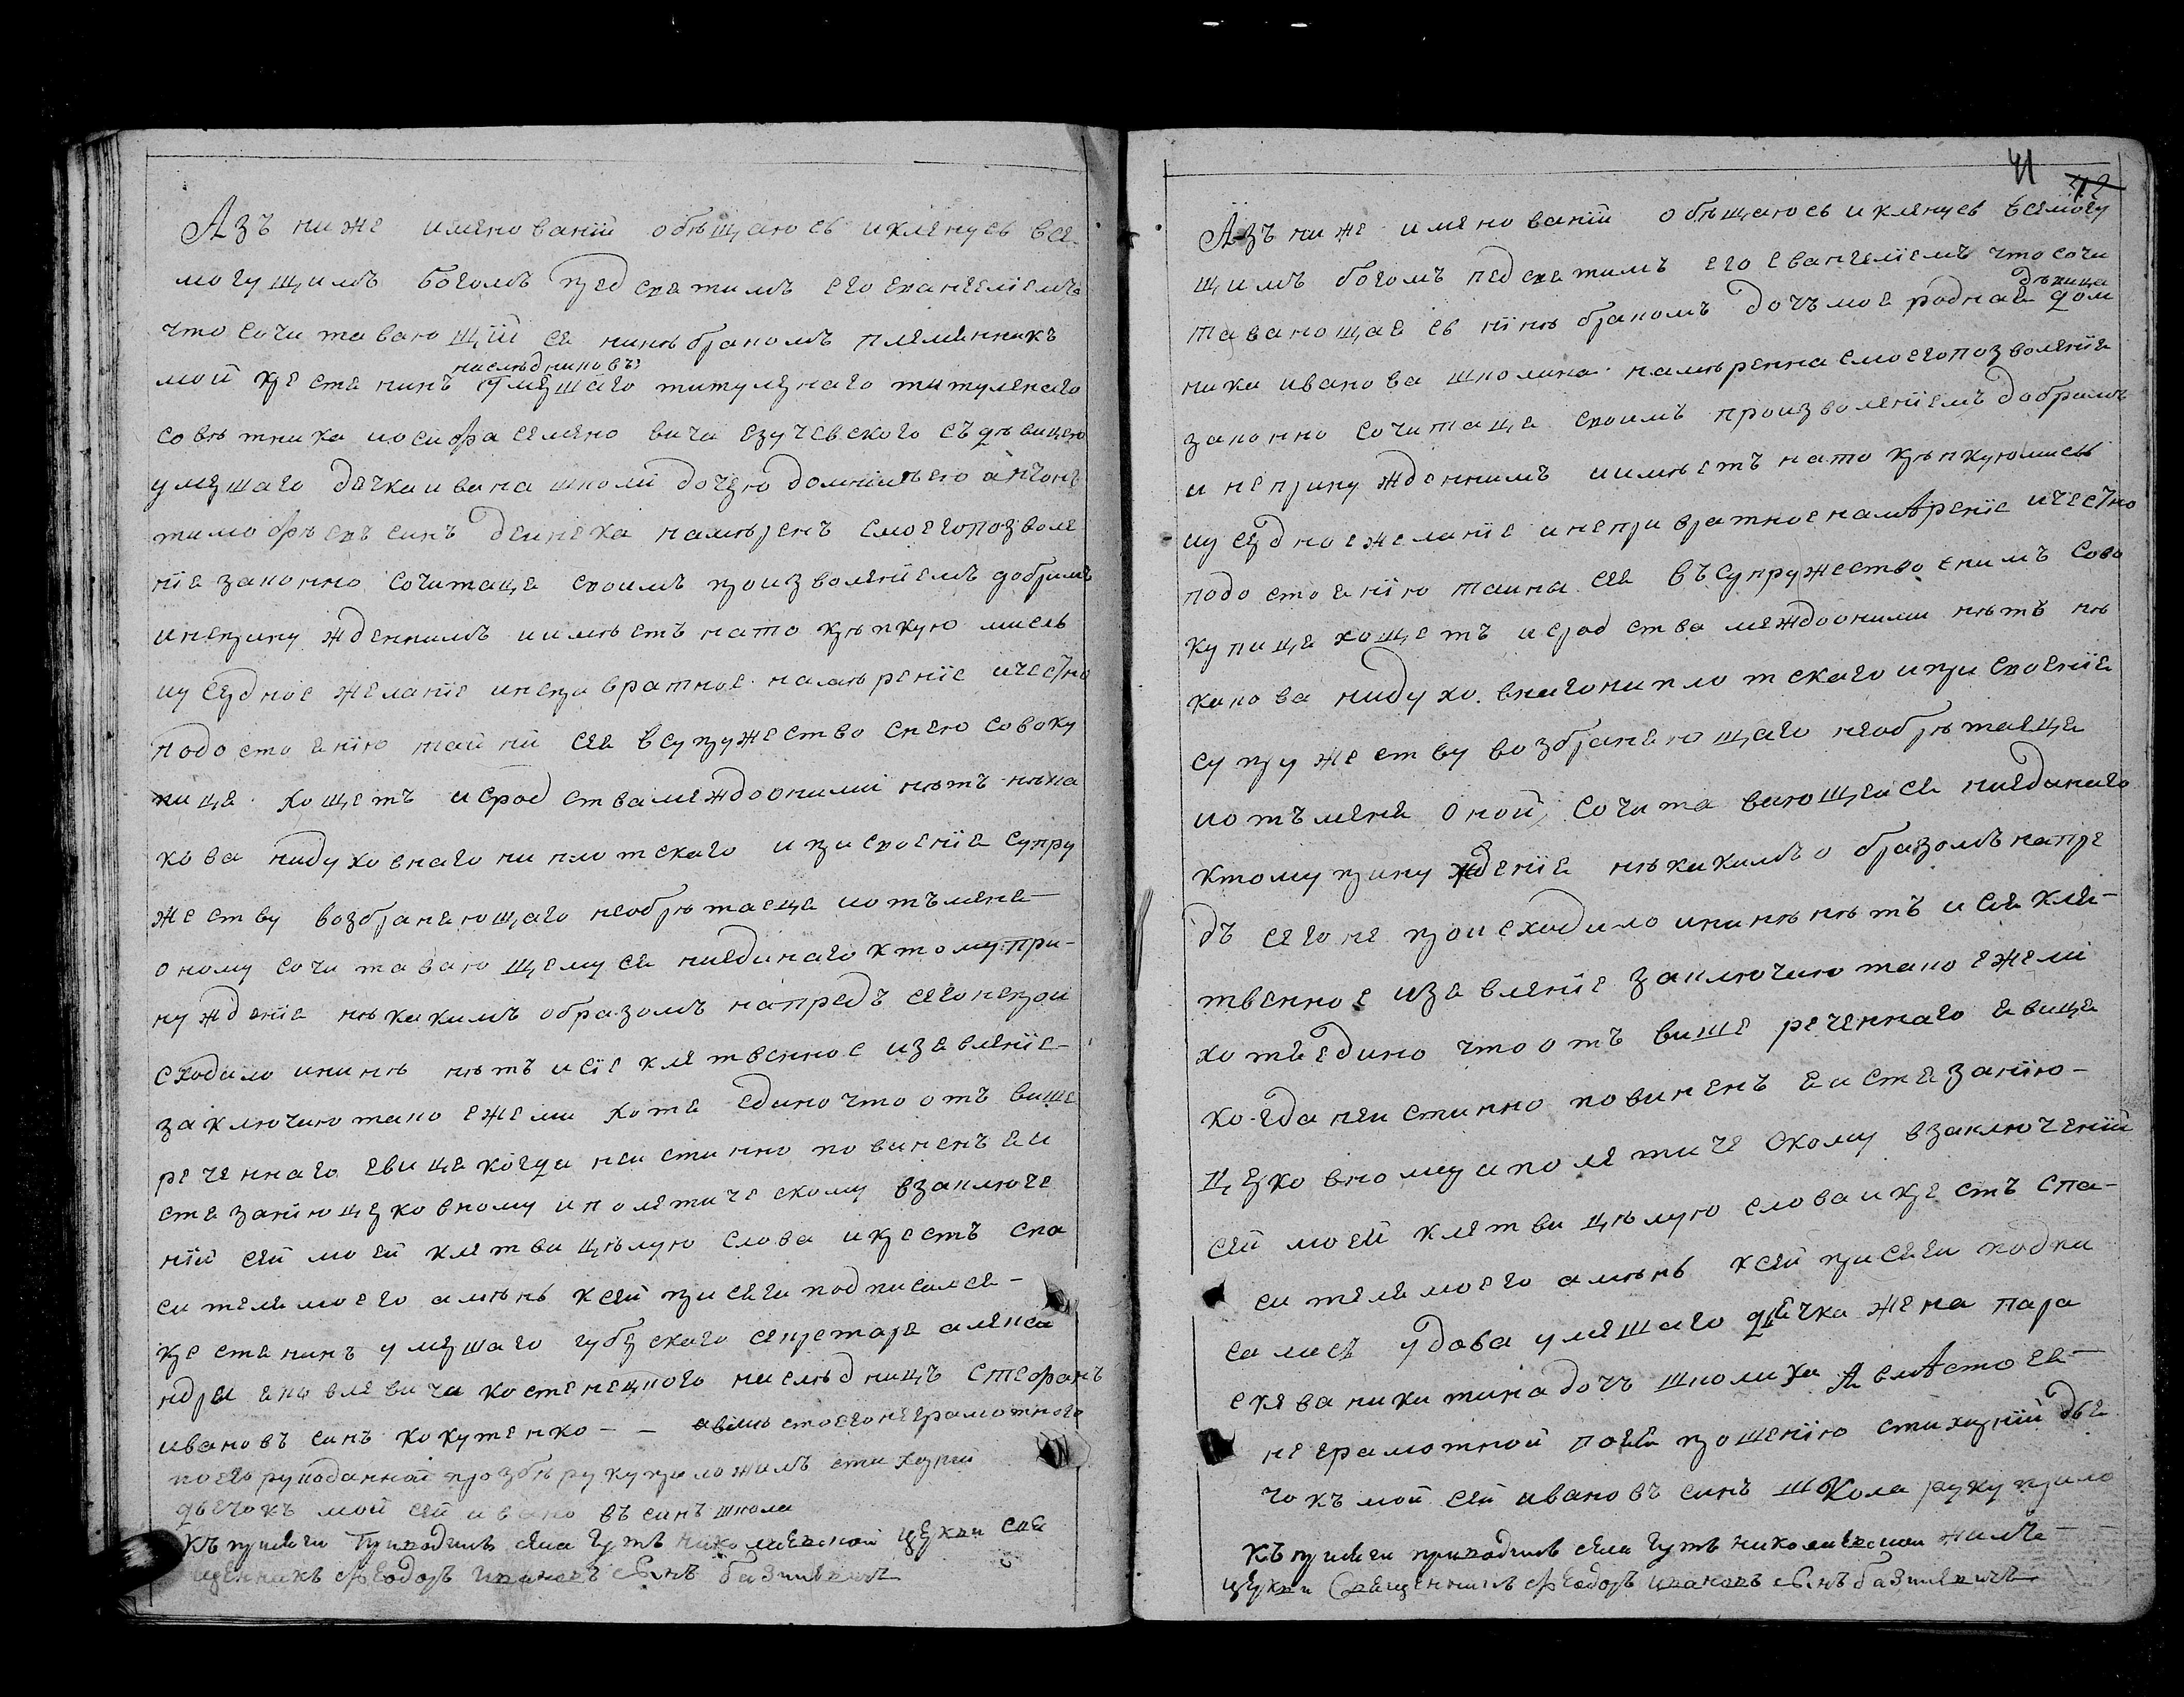 Азъ ниже имянованій обѣщаюсь и кленусь все-
могущимъ богомъ пред светимъ его евангеліемъ
что сочитавающій се нинѣ бракомъ племенникъ
наслѣдниковъ
мой крестенинъ умершаго титулярнаго титулярнаго
совѣтника иосифа семеновича езучевского съ дѣвицею
умершаго дячка ивана школи дочерю домникіею антонъ
тимофѣевъ синъ деинека намѣренъ смоегопозволе
ніе законно сочитаце своимъ произволеніемъ добримъ
и непринужденнимъ и имѣетъ на то крѣпкую мисль
иусердное желаніе инепревратное намѣреніе ичестно
подостоенію тайни сея всупружество снею совоку
пице хощетъ и сродства междоними нѣтъ нѣка
кова нидуховнаго ни плотскаго и присвоеніе супру
жеству возбранеющаго необрѣтаеце иотъмене
оному сочитавающемусе ниединаго ктому при-
нужденіе нѣкакимъ образомъ напредъ сегонепрои
сходило ининѣ нѣтъ исіе клятвенное изевленіе-
заключию тако ежели хоте единочтоотъ више
реченнаго евице когда неистинно повиненъ еи
стезанію церковному и полетическому взаключе
ніи сей моей клятви целую слова икрестъ спа
сителя моего аминь ксей присеги подписалсе-
крестенинъ умершаго губерского секретаре алекса
ндра еновлевича костенецкого наслѣдницъ стефанъ
ивановъ синъ кокутенко - - авмѣстоегонеграмотного
поегорукоданной прозбѣ руку приложилъ стихарній
дьечокъ мойсей ивановъ синъ школа
Къ присеги приводилъ села гутъ николаевской церкви све
щенникъ феодоръ ивановъ синъ базилевичъ
41
42
Азъ ниже имянованій обѣщаюсь и кленусь всемогу
щимъ богомъ пред светимъ его евангеліемъ что сочи
дѣвица
тавающае сь нінѣ бракомъ дочъ мое роднае дом
ника иванова школина намѣренна смоегопозволеніе
законно сочитаце своимъ произволеніемъ добримъ
и непринужденнимъ и имѣетъ на то крѣпкуюмисль
иусердноежеланіе инепривратноенамѣреніе ичестно
подостоенію таина сея въсупружество снимъ сово
купице хощетъ и сродства междоними нѣтъ нѣ
какова нидуховнагониплотскаго иприсвоеніе
супружеству возбранеющаго необрѣтаеце
иотъмене оной сочитавающейсе ниединаго
ктому принужденіе нѣкакимъ образомъ напре
дъ сего не происходило ининѣ нѣтъ и сіе кля-
твенное изевленіе заключию тако ежели
хотеедино что отъ више реченнаго евице
когда неистинно повиненъ еистезанію-
церковному и полетиче скому взаключеніи
сей моей клятви целую слова и крестъ спа-
сителя моего аминь ксей присеги подпи
салась удова умершаго дячка жена пара
скева никитина дочъ школиха А вмѣсто ее-
неграмотной поее прошенію стихарній дье
чокъ мойсей ивановъ синъ школа руку прило
Къ присеги приводилъ села гутъ николаевской жилъ-
церкви Священникъ феодоръ ивановъ синъ базилевичъ